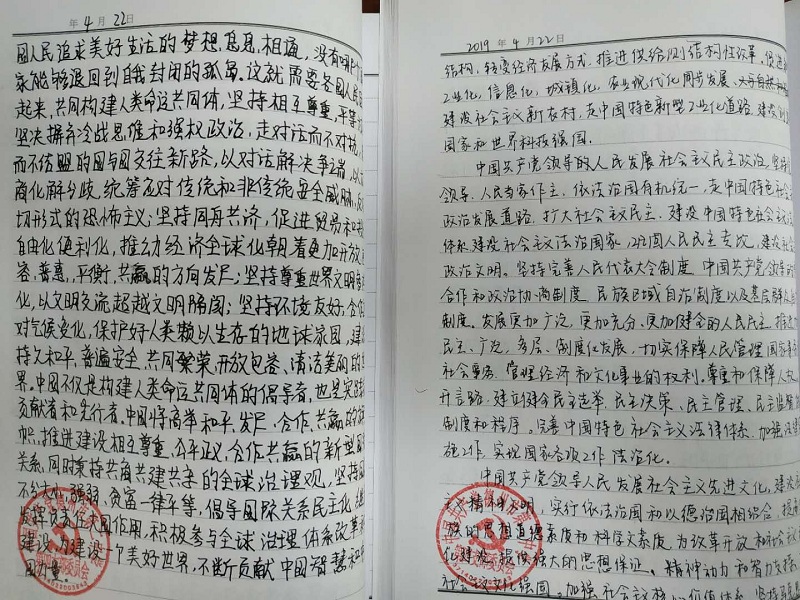 年 4 月 22 日
国人民追求美好生活的梦想息息相通，没有哪个
家能够退回到自我封闭的孤岛。这就需要各国人民
起来，共同构建人类命运共同体，坚持相互尊重，平等
坚决摒弃冷战思维和强权政治，走对话而不对抗，
而不结盟的国与国交往新路，以对话解决争端，以
商化解分歧，统筹应对传统和非传统安全威胁，
切形式的恐怖主义；坚持同舟共济，促进贸易和
自由化便利化，推动经济全球化朝着更加开放、
容、普惠、平衡、共赢的方向发展；坚持尊重世界文明
化，以文明交流超越文明隔阂；坚持环境友好，合作
对气候变化，保护好人类赖以生存的地球家园，建
持久和平、普遍安全、共同繁荣、开放包容、清洁美丽的
界。中国不仅是构建人类命运共同体的倡导者，也是实践
贡献者和先行者。中国将高举和平、发展、合作、共赢的
帜，推进建设相互尊重、公平正义、合作共赢的新型国
关系，同时秉持共商共建共享的全球治理观，坚持国
不分大小、强弱、贫富一律平等，倡导国际关系民主化，
发挥负责任大国作用，积极参与全球治理体系改革
建设，为建设一个美好世界，不断贡献中国智慧和
国力量。
2019 年 4 月 22 日
结构，转变经济发展方式，推进供给侧结构性改革，促进
工业化、信息化、城镇化、农业现代化同步发展，
建设社会主义新农村，走中国特色新型工业化道路，建设
国家和世界科技强国。
中国共产党领导的人民发展社会主义民主政治，坚持
领导、人民当家作主、依法治国有机统一，走中国特色社会
政治发展道路，扩大社会主义民主，建设中国特色社会主义
体系，建设社会主义法治国家，巩固人民民主专政，建设社会
政治文明。坚持完善人民代表大会制度、中国共产党领导的
合作和政治协商制度、民族区域自治制度以及基层群众
制度。发展更加广泛、更加充分、更加健全的人民民主，推进
民主、广泛、多层、制度化发展，切实保障人民管理国家事
社会事务、管理经济和文化事业的权利。尊重和保障人权，
开言路，建立健全民主选举、民主决策、民主管理、民主监督
制度和程序。完善中国特色社会主义法律体系，加强
施工作，实现国家各项工作法治化。
中国共产党领导人民发展社会主义先进文化，建设
主义精神文明，实行依法治国和以德治国相结合，提高
族的思想道德素质和科学文化素质，为改革开放和社会
化建设提供强大的思想保证、精神动力和智力支持，
社会主义文化强国。加强社会主义核心价值体系，坚持